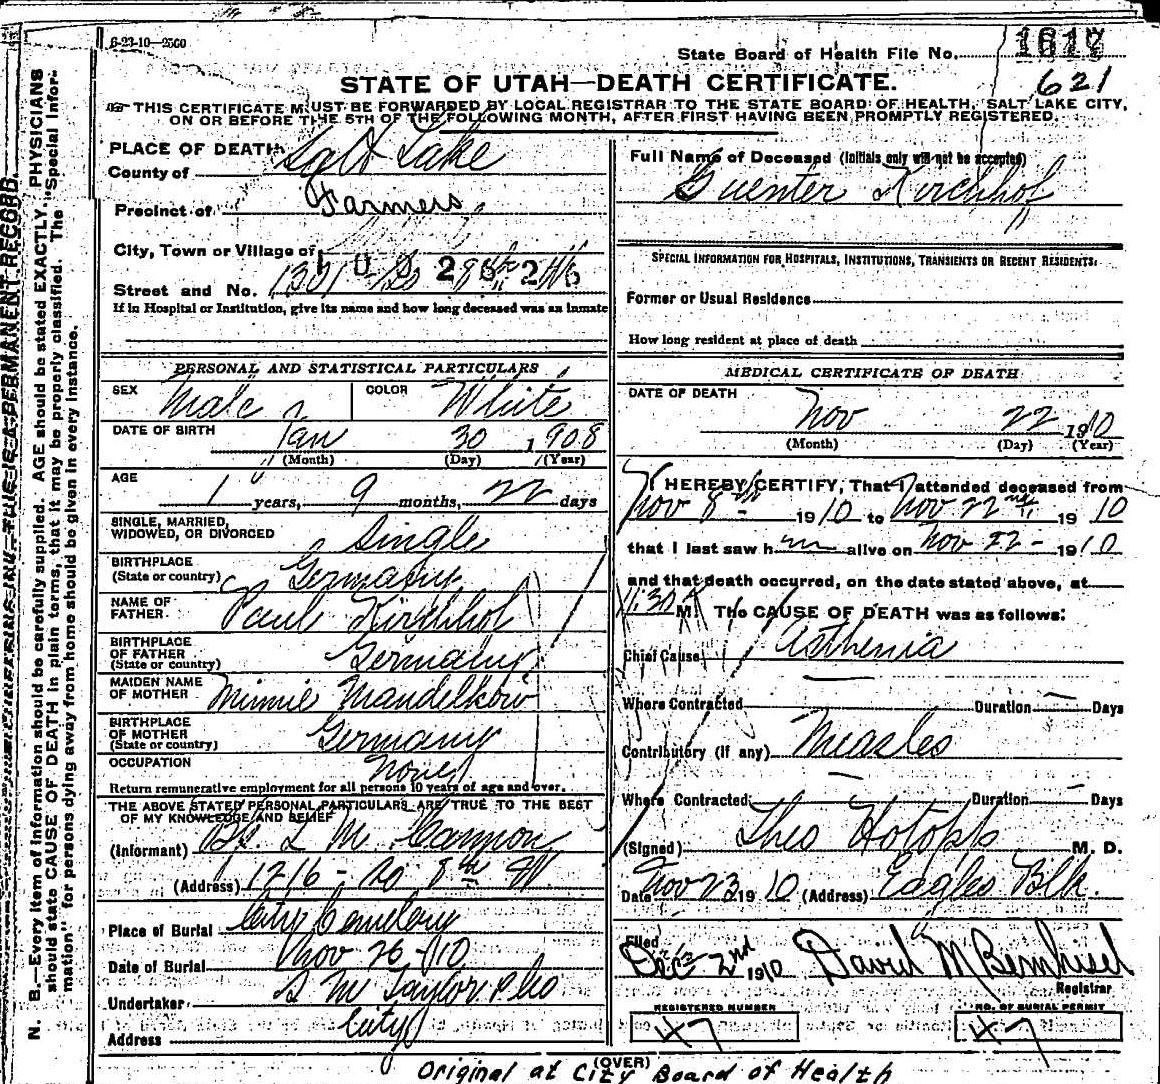 6-23-10—2500
State Board of Health File No. 1617
621
STATE OF UTAH—DEATH CERTIFICATE.
THIS CERTIFICATE MUST BE FORWARDED BY LOCAL REGISTRAR TO THE STATE BOARD OF HEALTH, SALT LAKE CITY,
ON OR BEFORE THE 5TH OF THE FOLLOWING MONTH, AFTER FIRST HAVING BEEN PROMPTLY REGISTERED.
PLACE OF DEATH
County of Salt Lake
Precinct of Farmers
City, Town or Village of
Street and No. 1301 So 9th
If in Hospital or Institution, give its name and how long deceased was an inmate
PERSONAL AND STATISTICAL PARTICULARS
SEX Male COLOR White
DATE OF BIRTH Jan 30 1908
(Month) (Day) (Year)
AGE
1 years, 9 months, 22 days
SINGLE, MARRIED,
WIDOWED, OR DIVORCED Single
BIRTHPLACE
(State or country) Germany
NAME OF
FATHER Paul Kirchhof
BIRTHPLACE
OF FATHER
(State or country) Germany
MAIDEN NAME
OF MOTHER Minnie Mandelkow
BIRTHPLACE
OF MOTHER
(State or country) Germany
OCCUPATION None
Return remunerative employment for all persons 10 years of age and over.
THE ABOVE STATED PERSONAL PARTICULARS ARE TRUE TO THE BEST
OF MY KNOWLEDGE AND BELIEF
(Informant) L M Cannon
(Address) 1216 - So 8th W
Place of Burial City Cemetery
Date of Burial Nov 26 - 10
Undertaker S M Taylor & Co
Address City
Full Name of Deceased (Initials only will not be accepted)
Guenter Kirchhof
SPECIAL INFORMATION FOR HOSPITALS, INSTITUTIONS, TRANSIENTS OR RECENT RESIDENTS:
Former or Usual Residence
How long resident at place of death
MEDICAL CERTIFICATE OF DEATH
DATE OF DEATH
Nov 22 1910
(Month) (Day) (Year)
I HEREBY CERTIFY, That I attended deceased from
Nov 8th 1910 to Nov 22nd 1910
that I last saw him alive on Nov 22 - 1910
and that death occurred, on the date stated above, at
11:30 M. The CAUSE OF DEATH was as follows:
Chief Cause Asthenia
Where Contracted Duration Days
Contributory (if any) Measles
Where Contracted Duration Days
(Signed) Theo Hotopp M. D.
Date Nov 23 1910 (Address) Eagles Blk.
Filed
Dec 2nd 1910 David M Bernhisel
Registrar
REGISTERED NUMBER
47
NO. OF BURIAL PERMIT
47
(OVER)
Original at City Board of Health
N. B.—Every item of information should be carefully supplied. AGE should be stated EXACTLY. PHYSICIANS
should state CAUSE OF DEATH in plain terms, that it may be properly classified. The "Special Infor-
mation" for persons dying away from home should be given in every instance.